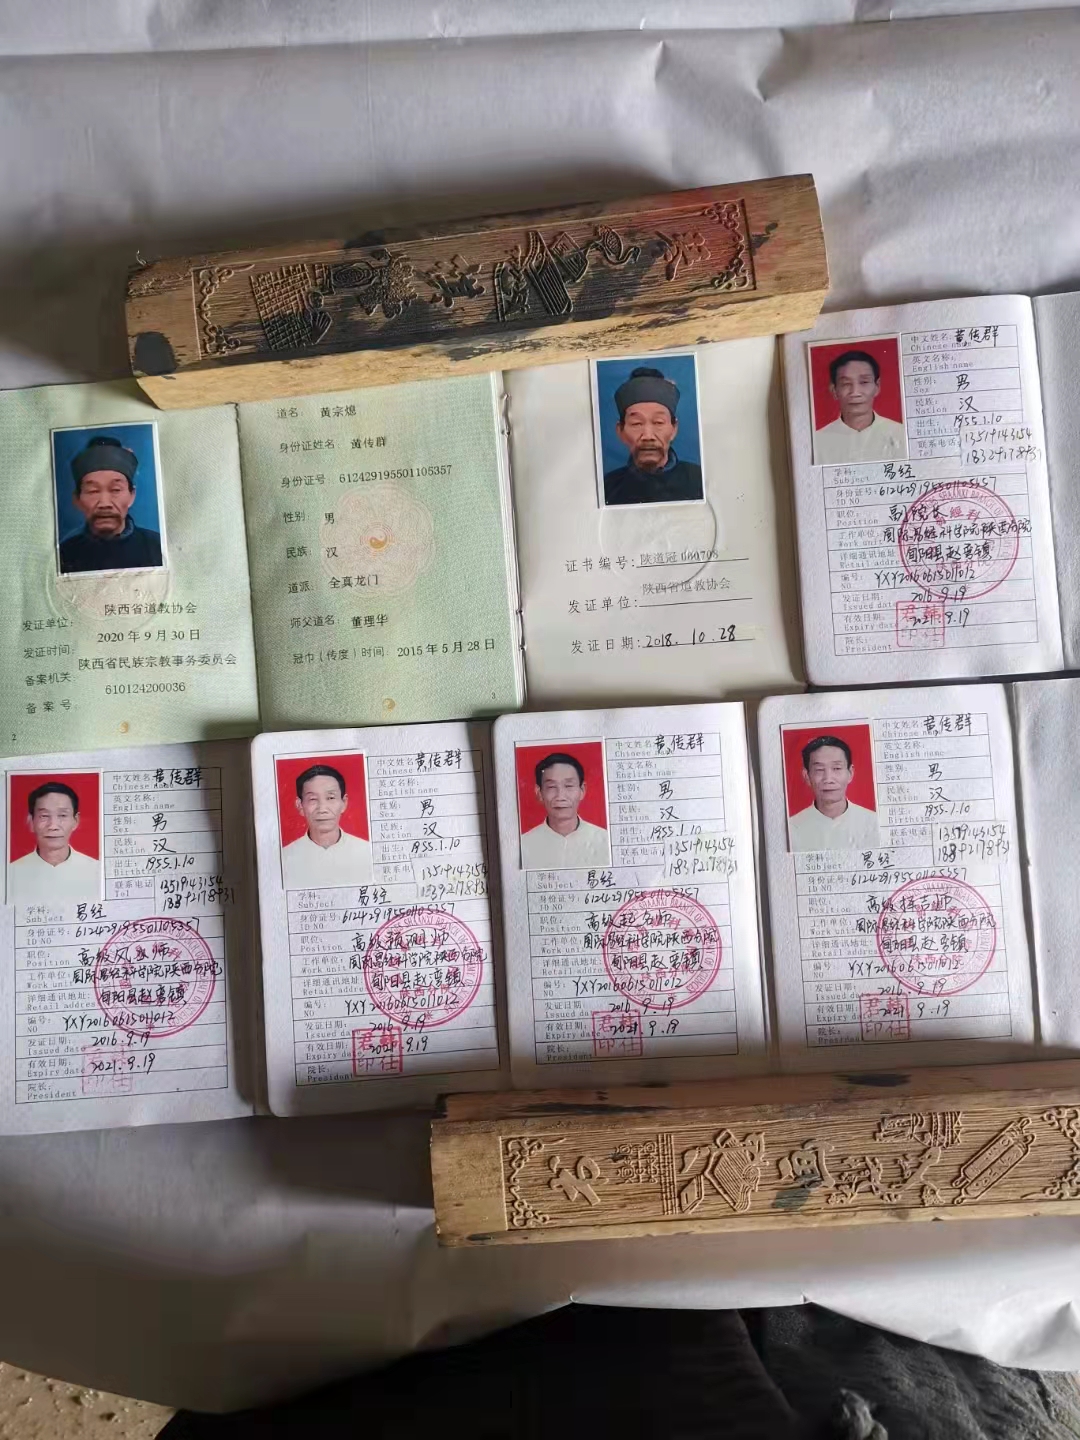 道名 黄宗熄
身份证姓名 黄传群
身份证号 612429195501105357
性别 男
民族: 汉
道派: 全真龙门
师父道名: 董理华
冠巾（传度）时间: 2015年5月28日
3
发证单位: 陕西省道教协会
发证时间: 2020年9月30日
备案机关: 陕西省民族宗教事务委员会
备案号 610124200036
2
证书编号: 陕道冠080708
发证单位: 陕西省道教协会
发证日期: 2018.10.28
中文姓名: 黄传群
Chinese name
英文名称:
English name
性别: 男
Sex
民族: 汉
Nation
出生: 1955.1.10
Birthtime
联系电话 13519143154
Tel
学科: 易经
Subject
身份证号: 612429195501105357
ID NO
职位: 副院长
Position
工作单位: 国际易经科学院陕西分院
Work unit
详细通讯地址: 旬阳县赵湾镇
Retail address
编号: YXY20160615011012
NO
发证日期: 2016.9.19
Issued date
有效日期: 2021.9.19
Expiry date
院长:
President
中文姓名 黄传群
Chinese name
英文名称:
English name
性别: 男
Sex
民族: 汉
Nation
出生: 1955.1.10
Birthtime
联系电话 13519143154
Tel 18392178931
学科: 易经
Subject
身份证号: 612429195501105357
ID NO
职位: 高级风水师
Position
工作单位: 国际易经科学院陕西分院
Work unit
详细通讯地址: 旬阳县赵湾镇
Retail address
编号: YXY20160615011012
NO
发证日期: 2016.9.19
Issued date
有效日期: 2021.9.19
Expiry date
院长:
President
中文姓名: 黄传群
Chinese name
英文名称:
English name
性别: 男
Sex
民族: 汉
Nation
出生: 1955.1.10
Birthtime
联系电 13519143154
Tel 18392178931
学科: 易经
Subject
身份证号: 612429195501105357
ID NO
职位: 高级预测师
Position
工作单位: 国际易经科学院陕西分院
Work unit
详细通讯地址: 旬阳县赵湾镇
Retail address
编号: YXY20160615011012
NO
发证日期: 2016.9.19
Issued date
有效日期: 2021.9.19
Expiry date
院长:
President
中文姓名: 黄传群
Chinese name
英文名称:
English name
性别: 男
Sex
民族: 汉
Nation
出生: 1955.1.10
Birthtime
联系电话 13519143154
Tel 18392178931
学科: 易经
Subject
身份证号: 612429195501105357
ID NO
职位: 高级起名师
Position
工作单位 国际易经科学院陕西分院
Work unit
详细通讯地址: 旬阳县赵湾镇
Retail address
编号: YXY20160615011012
NO
发证日期: 2016.9.19
Issued date
有效日期: 2021.9.19
Expiry date
院长:
President
中文姓名: 黄传群
Chinese name
英文名称:
English name
性别: 男
Sex
民族: 汉
Nation
出生: 1955.1.10
Birthtime
联系电话 13519143154
Tel
学科: 易经
Subject
身份证号: 612429195501105357
ID NO
职位: 高级择吉师
Position
工作单位: 国际易经科学院陕西分院
Work unit
详细通讯地址: 旬阳县赵湾镇
Retail address
编号 YXY20160615011012
NO
发证日期: 2016.9.19
Issued date
有效日期: 2021.9.19
Expiry date
院长:
President